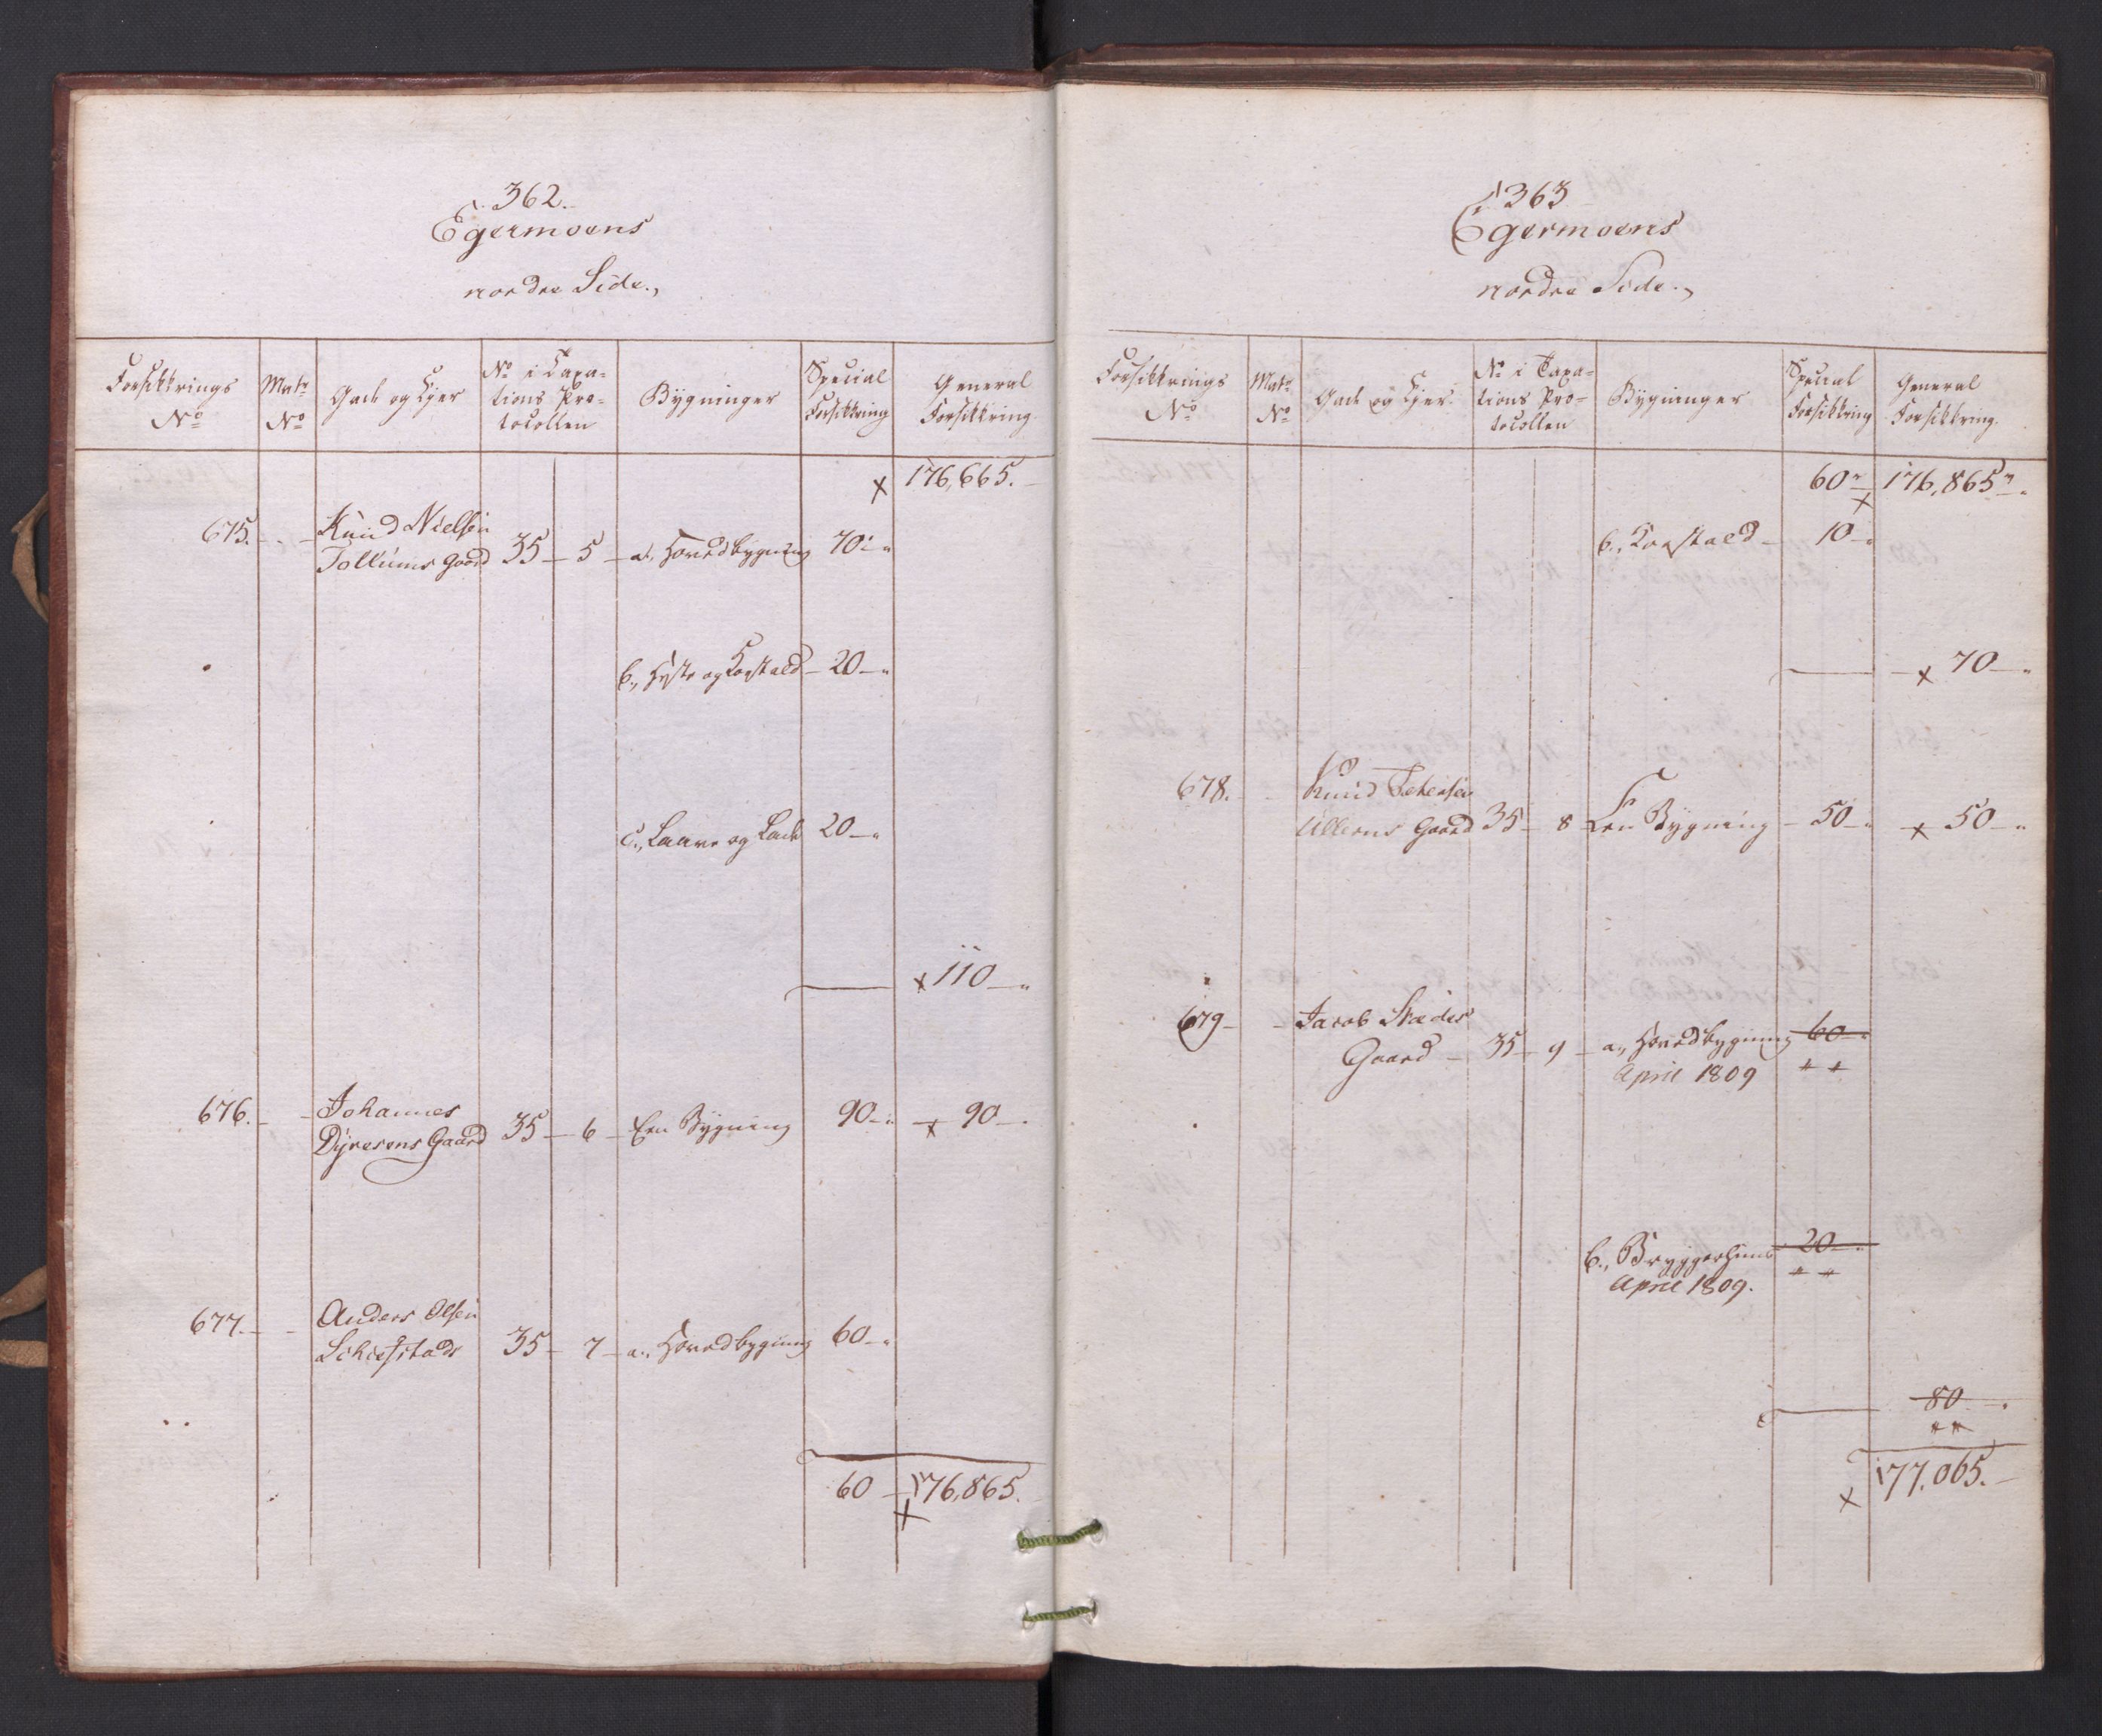 362.
Egermoens
nordre Side.,
Forsikkrings No
Matr No
Gade og Ejer
No i Taxa-
tions Pro-
tocollen
Bygninger
Special Forsikkring
General Forsikkring
x 176,665.
675. - - Knud Nielsen
Tollums Gaard 35 - 5 - a., Hovedbygning 70 - "
b., Heste og Koestald - 20 - "
c., Laave og Lade 20 - "
x 110 - "
676. - - Johannes
Dyresens Gaard 35 - 6 - Een Bygning 90 - " x 90 -
677. - - Anders Olsen
Schiefstads 35 - 7 - a., Hovedbygning 60 - "
60 - 176,865.
x
363
Egermoens
nordre Side.,
Forsikkrings No
Matr No
Gade og Ejer
No i Taxa-
tions Pro-
tocollen
Bygninger
Special Forsikkring
General Forsikkring.
60 " 176,865 "
x
b., Koestald - 10 - "
x 70 - "
678. - - Knud Petersen
Ullerens Gaard 35 - 8 - Een Bygning - 50 - " x 50 - "
679 - - Jacob Skæder
Gaard - 35 - 9 - a., Hovedbygning 60 - "
April 1809 x x
b., Bryggerhuus 20 - "
April 1809. x x
80 -
x x
x 177,065. -